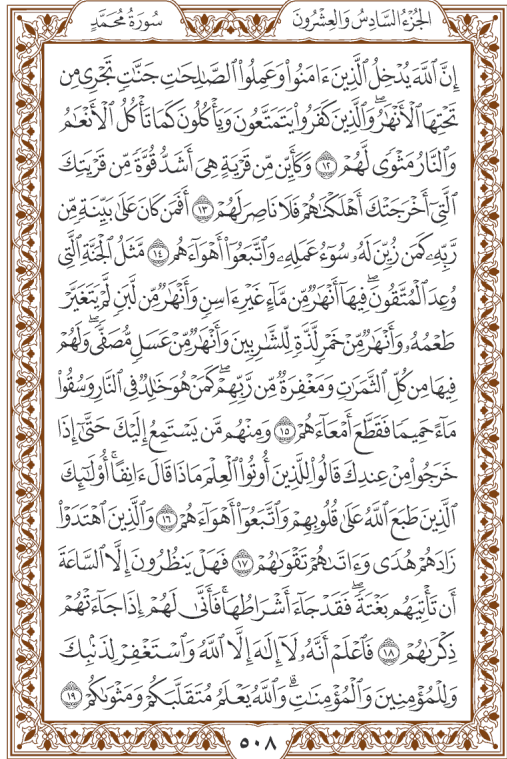 الجزء السادس والعشرون سورة محمد
إِنَّ ٱللَّهَ يُدْخِلُ ٱلَّذِينَ ءَامَنُوا۟ وَعَمِلُوا۟ ٱلصَّٰلِحَٰتِ جَنَّٰتٍ تَجْرِى مِن
تَحْتِهَا ٱلْأَنْهَٰرُ ۖ وَٱلَّذِينَ كَفَرُوا۟ يَتَمَتَّعُونَ وَيَأْكُلُونَ كَمَا تَأْكُلُ ٱلْأَنْعَٰمُ
وَٱلنَّارُ مَثْوًى لَّهُمْ ١٢ وَكَأَيِّن مِّن قَرْيَةٍ هِىَ أَشَدُّ قُوَّةً مِّن قَرْيَتِكَ
ٱلَّتِىٓ أَخْرَجَتْكَ أَهْلَكْنَٰهُمْ فَلَا نَاصِرَ لَهُمْ ١٣ أَفَمَن كَانَ عَلَىٰ بَيِّنَةٍ مِّن
رَّبِّهِۦ كَمَن زُيِّنَ لَهُۥ سُوٓءُ عَمَلِهِۦ وَٱتَّبَعُوٓا۟ أَهْوَآءَهُم ١٤ مَّثَلُ ٱلْجَنَّةِ ٱلَّتِى
وُعِدَ ٱلْمُتَّقُونَ ۖ فِيهَآ أَنْهَٰرٌ مِّن مَّآءٍ غَيْرِ ءَاسِنٍ وَأَنْهَٰرٌ مِّن لَّبَنٍ لَّمْ يَتَغَيَّرْ
طَعْمُهُۥ وَأَنْهَٰرٌ مِّنْ خَمْرٍ لَّذَّةٍ لِّلشَّٰرِبِينَ وَأَنْهَٰرٌ مِّنْ عَسَلٍ مُّصَفًّى ۖ وَلَهُمْ
فِيهَا مِن كُلِّ ٱلثَّمَرَٰتِ وَمَغْفِرَةٌ مِّن رَّبِّهِمْ ۖ كَمَنْ هُوَ خَٰلِدٌ فِى ٱلنَّارِ وَسُقُوا۟
مَآءً حَمِيمًا فَقَطَّعَ أَمْعَآءَهُمْ ١٥ وَمِنْهُم مَّن يَسْتَمِعُ إِلَيْكَ حَتَّىٰٓ إِذَا
خَرَجُوا۟ مِنْ عِندِكَ قَالُوا۟ لِلَّذِينَ أُوتُوا۟ ٱلْعِلْمَ مَاذَا قَالَ ءَانِفًا ۚ أُو۟لَٰٓئِكَ
ٱلَّذِينَ طَبَعَ ٱللَّهُ عَلَىٰ قُلُوبِهِمْ وَٱتَّبَعُوٓا۟ أَهْوَآءَهُمْ ١٦ وَٱلَّذِينَ ٱهْتَدَوْا۟
زَادَهُمْ هُدًى وَءَاتَىٰهُمْ تَقْوَىٰهُمْ ١٧ فَهَلْ يَنظُرُونَ إِلَّا ٱلسَّاعَةَ
أَن تَأْتِيَهُم بَغْتَةً ۖ فَقَدْ جَآءَ أَشْرَاطُهَا ۚ فَأَنَّىٰ لَهُمْ إِذَا جَآءَتْهُمْ
ذِكْرَىٰهُمْ ١٨ فَٱعْلَمْ أَنَّهُۥ لَآ إِلَٰهَ إِلَّا ٱللَّهُ وَٱسْتَغْفِرْ لِذَنۢبِكَ
وَلِلْمُؤْمِنِينَ وَٱلْمُؤْمِنَٰتِ ۗ وَٱللَّهُ يَعْلَمُ مُتَقَلَّبَكُمْ وَمَثْوَىٰكُمْ ١٩
٥٠٨